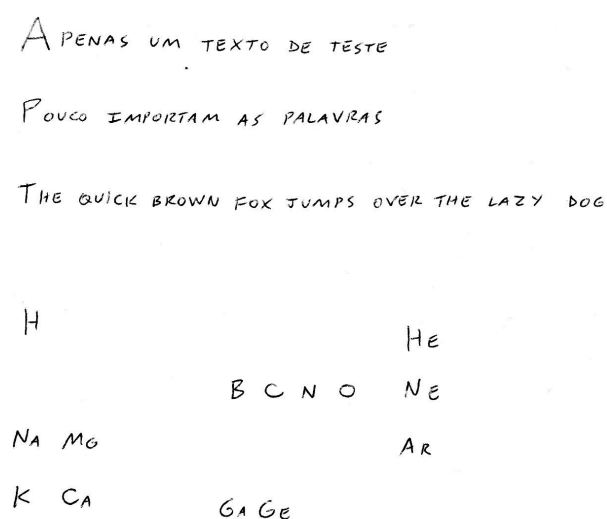 APENAS UM TEXTO DE TESTE
POUCO IMPORTAM AS PALAVRAS
THE QUICK BROWN FOX JUMPS OVER THE LAZY DOG
H
HE
B C N O NE
NA MG AR
K CA GA GE